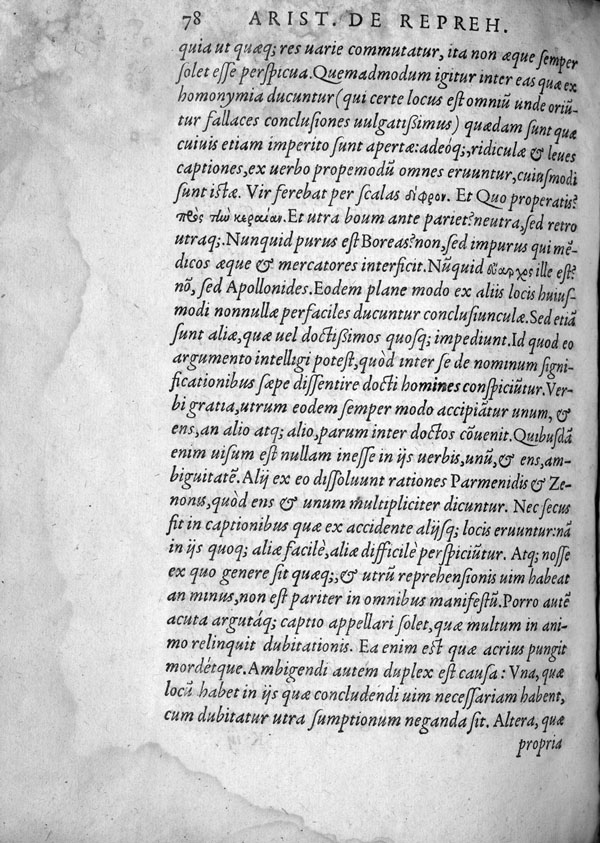 78 ARIST. DE REPREH.
quia ut quæq; res uarie commutatur, ita non æque semper
solet esse perspicua. Quemadmodum igitur inter eas quæ ex
homonymia ducuntur (qui certe locus est omniũ unde oriũ/
tur fallaces conclusiones uulgatißimus) quædam sunt quæ
cuiuis etiam imperito sunt apertæ: adeóq;, ridiculæ & leues
captiones, ex uerbo propemodũ omnes eruuntur, cuiusmodi
sunt istæ. Vir ferebat per scalas δίφρον. Et Quo properatis?
πρὸς τὼ κεραίαν. Et utra boum ante pariet? neutra, sed retro
utraq;. Nunquid purus est Boreas? non, sed impurus qui mẽ/
dicos æque & mercatores interficit. Nũquid εὔαρχος ille est?
nõ, sed Apollonides. Eodem plane modo ex aliis locis huius/
modi nonnullæ perfaciles ducuntur conclusiunculæ. Sed etiã
sunt aliæ, quæ uel doctißimos quosq; impediunt. Id quod eo
argumento intelligi potest, quòd inter se de nominum signi/
ficationibus sæpe dissentire docti homines conspiciũtur. Ver/
bi gratia, utrum eodem semper modo accipiãtur unum, &
ens, an alio atq; alio, parum inter doctos cõuenit. Quibusdã
enim uisum est nullam inesse in ijs uerbis, unũ, & ens, am/
biguitatẽ. Alij ex eo dissoluunt rationes Parmenidis & Ze/
nonis, quòd ens & unum multipliciter dicuntur. Nec secus
fit in captionibus quæ ex accidente alijsq; locis eruuntur: nã
in ijs quoq; aliæ facilè, aliæ difficilè perspiciũtur. Atq; nosse
ex quo genere sit quæq;, & utrũ reprehensionis uim habeat
an minus, non est pariter in omnibus manifestũ. Porro autẽ
acuta argutáq; captio appellari solet, quæ multum in ani/
mo relinquit dubitationis. Ea enim est quæ acrius pungit
mordétque. Ambigendi autem duplex est causa: Vna, quæ
locũ habet in ijs quæ concludendi uim necessariam habent,
cum dubitatur utra sumptionum neganda sit. Altera, quæ
propria